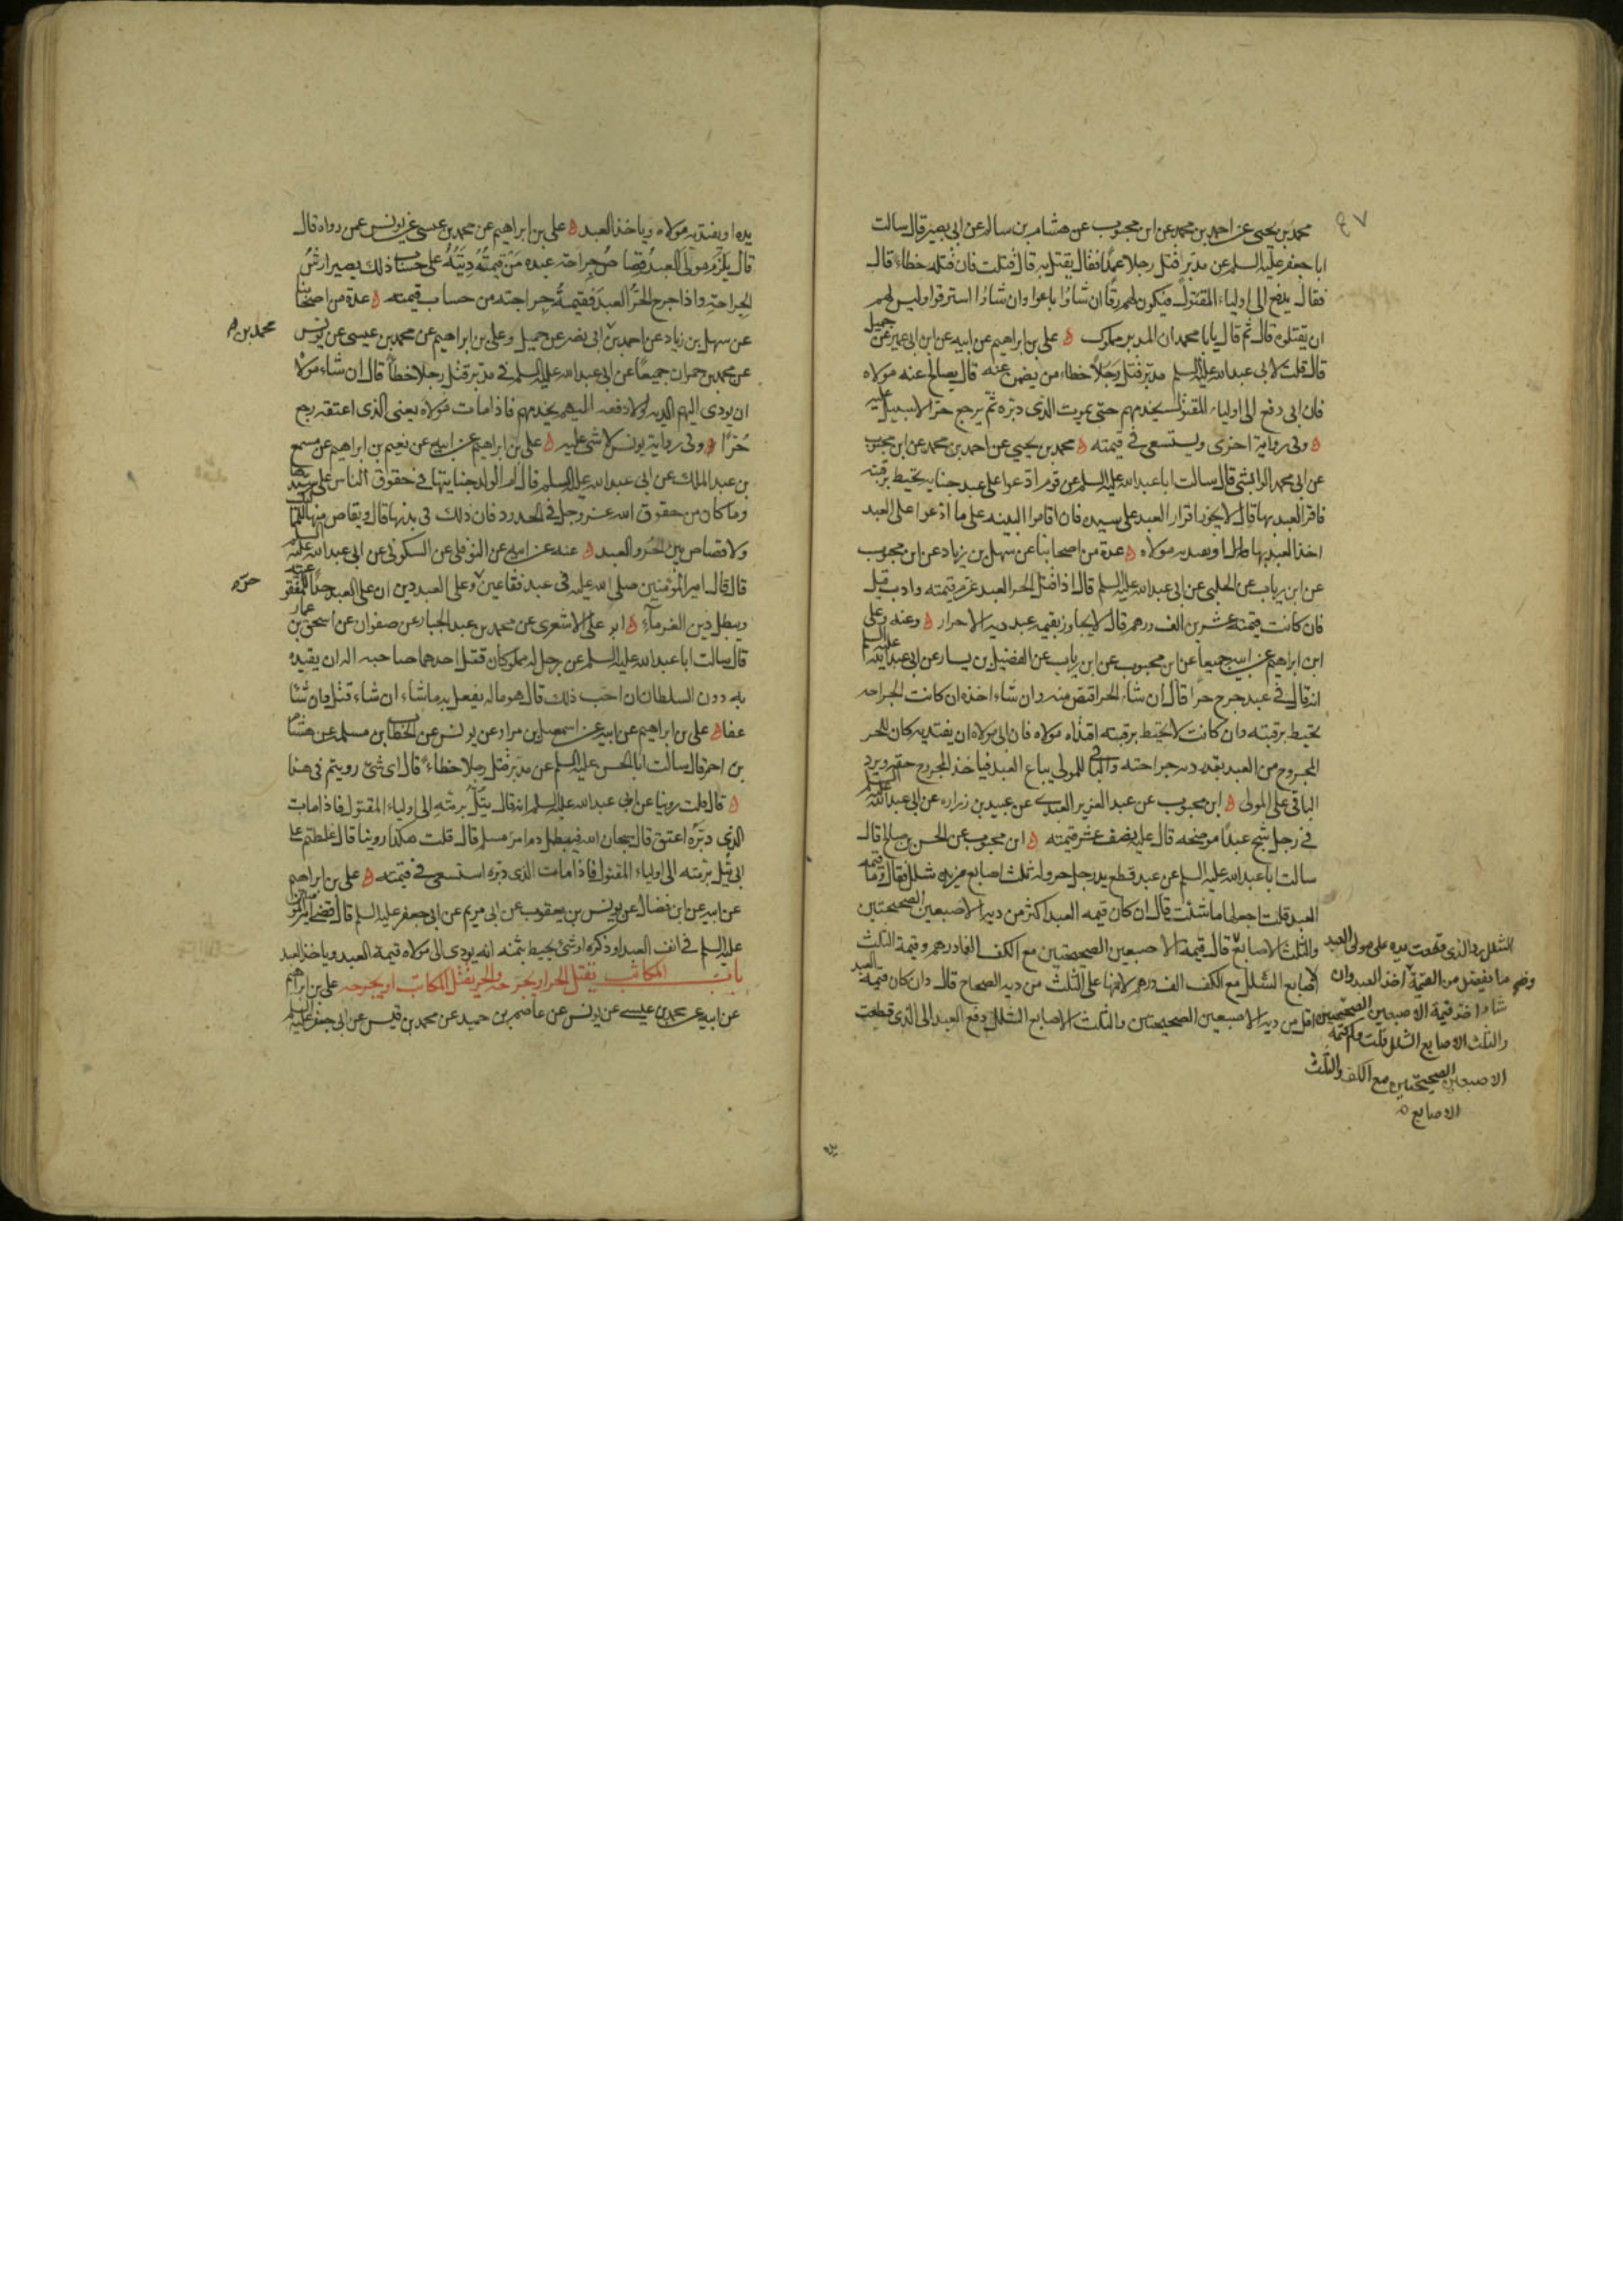 محمد بن يحيى عن احمد بن محمد عن ابن محبوب عن هشام بن سالم عن ابى بصير قال سالت
ابا جعفر عليه السلم عن مدبر قتل رجلا عمدا فقال يقتل به قال قلت فان قتله خطاء قال
فقال يدفع الى اولياء المقتول فيكون لهم رقا ان شاؤا باعوا وان شاؤا استرقوا وليس لهم
ان يقتلوه قال ثم قال يا با محمد ان المدبر مملوك ه على بن ابراهيم عن ابيه عن ابن ابى عمير عن جميل
قال قلت لابى عبد الله عليه السلم مدبر قتل رجلا خطاء من يضمن عنه قال يصالح عنه مولاه
فان ابى دفع الى اولياء المقتول يخدمهم حتى يموت الذى دبره ثم يرجع حرا لا سبيل عليه
ه وفى رواية اخرى ويستسعى فى قيمته ه محمد بن يحيى عن احمد بن محمد عن ابن محبوب
عن ابى محمد الوابشى قال سالت ابا عبد الله عليه السلم عن قوم ادعوا على عبد جناية تحيط برقبته
فاقر العبد بها قال لا يجوز اقرار العبد على سيده فان اقاموا البينه على ما ادعوا على العبد
اخذ العبد بها او يفديه مولاه ه عدة من اصحابنا عن سهل بن زياد عن ابن محبوب
عن ابن رياب عن الحلبى عن ابى عبد الله عليه السلم قال اذا قتل الحر العبد غرم قيمته وادب قيل
فان كانت قيمته عشرين الف درهم قال لا يجاوز بقيمه عبد ديه الاحرار ه وعنه وعلى
ابن ابراهيم عن ابيه جميعا عن ابن محبوب عن ابن رياب عن الفضيل بن يسار عن ابى عبد الله عليه السلم
انه قال فى عبد جرح حرا قال ان شاء الحر اقتص منه وان شاء اخذه ان كانت الجراحه
تحيط برقبته وان كانت لا تحيط برقبته افتداه مولاه فان ابى مولاه ان يفتديه كان للحر
المجروح من العبد بقدر ديه جراحته والباقى للمولى يباع العبد فياخذ المجروح حقه ويرد
الباقى على المولى ه ابن محبوب عن عبد العزيز العبدى عن عبيد بن زراره عن ابى عبد الله عليه السلم
فى رجل شج عبدا موضحه قال عليه نصف عشر قيمته ه ابن محبوب عن الحسن بن صالح قال
سالت ابا عبد الله عليه السلم عن عبد قطع يد رجل حر وله ثلث اصابع من يده شلل فقال وما قيمه
العبد قلت اجعلها ما شئت قال ان كان قيمه العبد اكثر من ديه الاصبعين الصحيحتين
والثلث الاصابع قال قيمة الاصبعين الصحيحتين مع الكف الفا درهم وقيمة الثلث
الاصابع الشلل مع الكف الف درهم لانها على الثلث من ديه الصحاح قال وان كان قيمة العبد
اقل من ديه الاصبعين الصحيحتين والثلث الاصابع الشلل دفع العبد الى الذى قطعت
الشلل رد الذى قطعت يده على مولى العبد
ما يفضل من القيمة واخذ العبد وان
شاء اخذ قيمة الاصبعين الصحيحتين
والثلث الاصابع الشلل قلت وكم قيمة
الاصبعين الصحيحتين مع الكف والثلث
الاصابع
يده او يفتديه مولاه وياخذ العبد ه على بن ابراهيم عن محمد بن عيسى عن يونس عمن رواه قال
قال يلزم مولى العبد قصاص جراحة عبده من قيمة ديته على حساب ذلك يصير ارش
الجراحة واذا جرح الحر العبد فقيمة جراحته من حساب قيمته ه عدة من اصحابنا
عن سهل بن زياد عن احمد بن ابى نصر عن جميل وعلى بن ابراهيم عن محمد بن عيسى عن يونس
محمد بن
عن محمد بن حمران جميعا عن ابى عبد الله عليه السلم فى مدبر قتل رجلا خطأ قال ان شاء مولاه
ان يودى اليهم الدية والا دفعه اليهم يخدمهم فاذا مات مولاه يعنى الذى اعتقه رجع
حرا ه وفى رواية يونس لا شى عليه ه على بن ابراهيم عن ابيه عن نعيم بن ابراهيم عن مسمع
بن عبد الملك عن ابى عبد الله عليه السلم قال ام الولد جنايتها فى حقوق الناس على سيدها
وما كان من حقوق الله عز وجل فى الحدود فان ذلك فى بدنها قال ويقاص منها للمماليك
ولا قصاص بين الحر والعبد ه عنه عن ابيه عن النوفلى عن السكونى عن ابى عبد الله عليه السلم
قال قال امير المؤمنين صلى الله عليه فى عبد فقا عين وعلى العبد دين ان على العبد حدا للمفقو عينه
حره
ويبطل دين الغرماء ه ابو على الاشعرى عن محمد بن عبد الجبار عن صفوان عن اسحق بن عمار
قال سالت ابا عبد الله عليه السلم عن رجل له مملوكان قتل احدهما صاحبه اله ان يقيده
به دون السلطان ان احب ذلك قال هو ماله يفعل به ما شاء ان شاء قتل وان شاء
عفا ه على بن ابراهيم عن ابيه عن اسمعيل بن مرار عن يونس عن الخطاب بن مسلمه عن هشام
بن احمر قال سالت ابا الحسن عليه السلم عن مدبر قتل رجلا خطاء قال اى شئ رويتم فى هذا
ه قال قلت روينا عن ابى عبد الله عليه السلم انه قال يتل برمته الى اولياء المقتول فاذا مات
الذى دبره اعتق قال سبحان الله فيبطل دم امرء مسلم قال قلت هكذا روينا قال غلطتم على
ابى يتل برمته الى اولياء المقتول فاذا مات الذى دبره استسعى فى قيمته ه على بن ابراهيم
عن ابيه عن ابن فضال عن يونس بن يعقوب عن ابى مريم عن ابى جعفر عليه السلم قال قضى امير المؤمنين
عليه السلم فى انف العبد او ذكره او شئ يحيط بثمنه انه يودى الى مولاه قيمة العبد وياخذ العبد
باب المكاتب يقتل الحر او يجرحه والحر يقتل المكاتب او يجرحه على بن ابراهيم
عن ابيه عن محمد بن عيسى عن يونس عن عاصم بن حميد عن محمد بن قيس عن ابى جعفر عليه السلم